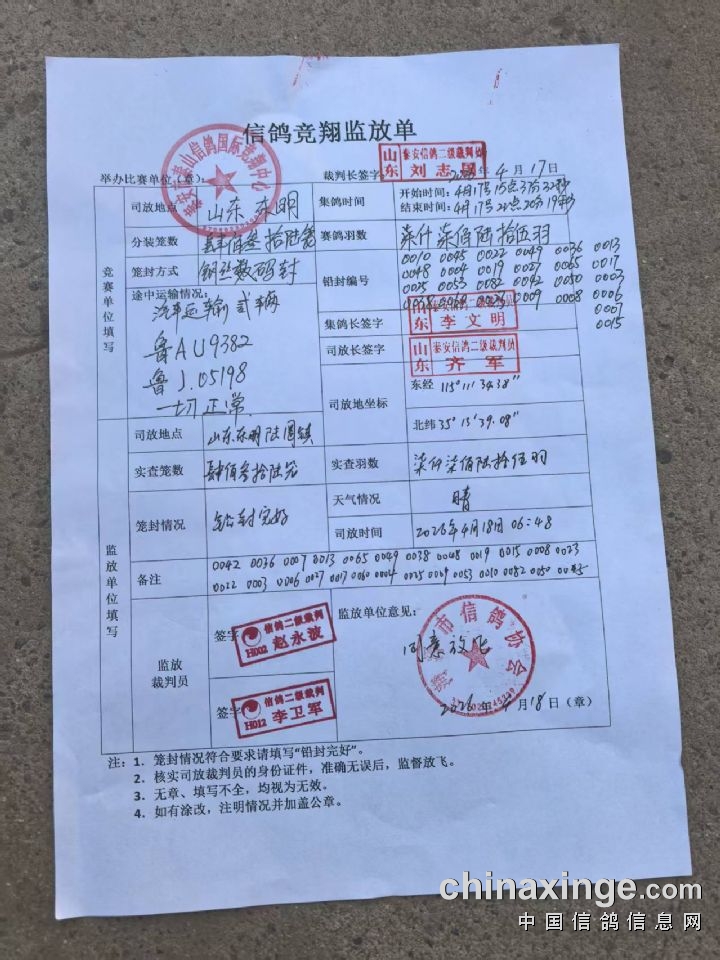 信鸽竞翔监放单
举办比赛单位（章）：
裁判长签字
山东 泰安信鸽二级裁判员 刘志
年4月17日
竞赛单位填写
司放地点 山东、东明
集鸽时间 开始时间：4月17号15点37分32秒
结束时间：4月17号22点20分19秒
分装笼数 肆佰叁拾陆笼
赛鸽羽数 柒仟柒佰陆拾伍羽
笼封方式 钢丝数码封
铅封编号 0010 0045 0022 0049 0036 0013
0048 0004 0019 0027 0065 0017
0025 0053 0082 0042 0050 0003
0009 0008 0006
0007
0015
途中运输情况：
汽车运输 贰辆
鲁AU9382
鲁J.05198
一切正常
集鸽长签字 山东 泰安信鸽二级裁判员 李文明
司放长签字 山东 泰安信鸽二级裁判员 齐军
司放地坐标 东经 115°11′34.38″
北纬 35°15′39.08″
监放单位填写
司放地点 山东东明陆圈镇
实查笼数 肆佰叁拾陆笼
实查羽数 柒仟柒佰陆拾伍羽
笼封情况 铅封完好
天气情况 晴
司放时间 2026年4月18日 06:48
备注 0042 0036 0007 0013 0065 0049 0038 0048 0019 0015 0008 0023
0022 0003 0006 0027 0017 0060 0004 0025 0009 0053 0010 0082 0050 0045
监放裁判员
签字 信鸽二级裁判 H002 赵永波
签字 信鸽二级裁判 H012 李卫军
监放单位意见：
同意放飞
市信鸽协会
2026年4月18日（章）
注：1. 笼封情况符合要求请填写“铅封完好”。
2. 核实司放裁判员的身份证件，准确无误后，监督放飞。
3. 无章、填写不全，均视为无效。
4. 如有涂改，注明情况并加盖公章。
chinaxinge.com
中国信鸽信息网